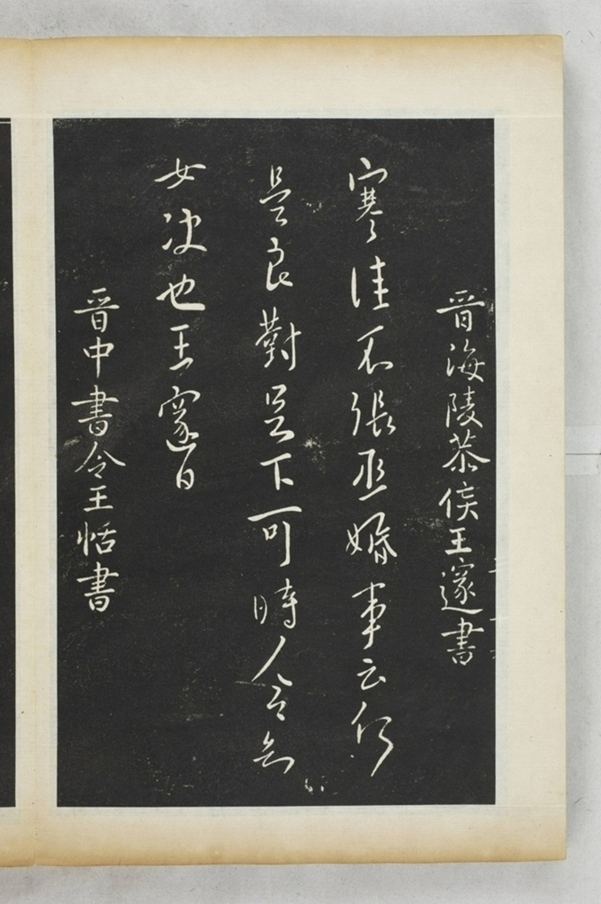 晉海陵恭侯王邃書
寒佳不張丞婚事云何
是良對足下可時令
女决也王邃白
晉中書令王恬書